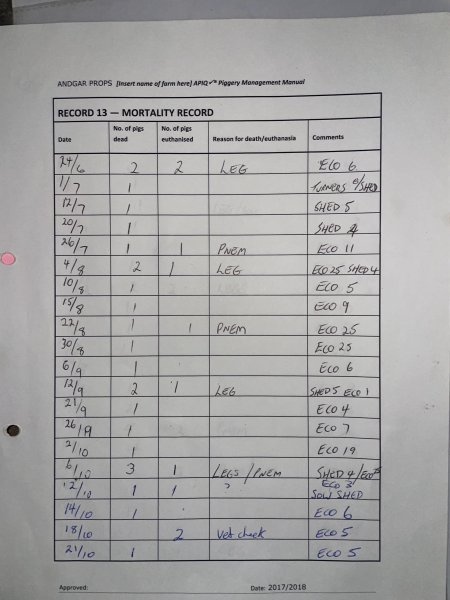 ANDGAR PROPS [Insert name of farm here] APIQ✓® Piggery Management Manual
RECORD 13 — MORTALITY RECORD
Date No. of pigs dead No. of pigs euthanised Reason for death/euthanasia Comments
24/6 2 2 LEG ECO 6
1/7 1 TURNERS SHED
12/7 1 SHED 5
20/7 1 SHED 4
26/7 1 1 PNEM ECO 11
4/8 2 1 LEG ECO 25 SHED 4
10/8 1 ECO 5
15/8 1 ECO 9
22/8 1 1 PNEM ECO 25
30/8 1 ECO 25
6/9 1 ECO 6
12/9 2 1 LEG SHED 5 ECO 1
21/9 1 ECO 4
26/9 1 ECO 7
2/10 1 ECO 19
6/10 3 1 LEGS/PNEM SHED 4/ECO
12/10 1 1 ? ECO 3 SOW SHED
14/10 1 ECO 6
18/10 2 Vet check ECO 5
21/10 1 ECO 5
Approved: Date: 2017/2018